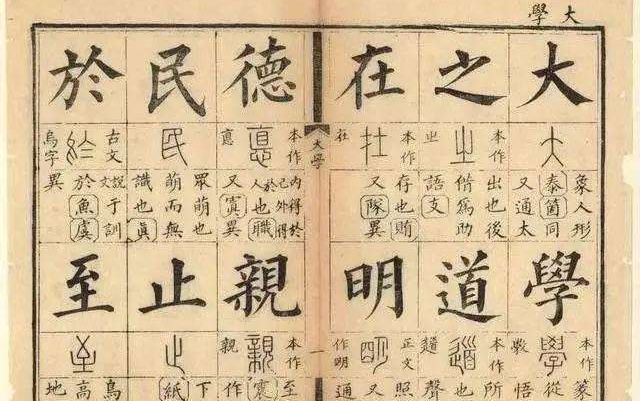 大學
大
象人形
泰箇同
又通太
學
本作
之
本作
出也後
借為助
語支
道
本作所
也
聲
在
本作
存也賄
又隊異
明
正文照
又
作明通
大學
一
德
本作
内得於
己外得
於人也職
又寘異
親
本作至
親作
民
眾萌也
萌而無
識也真
止
下
紙
於
古文說于訓
文於魚虞
烏字異
至
鳥
高
地